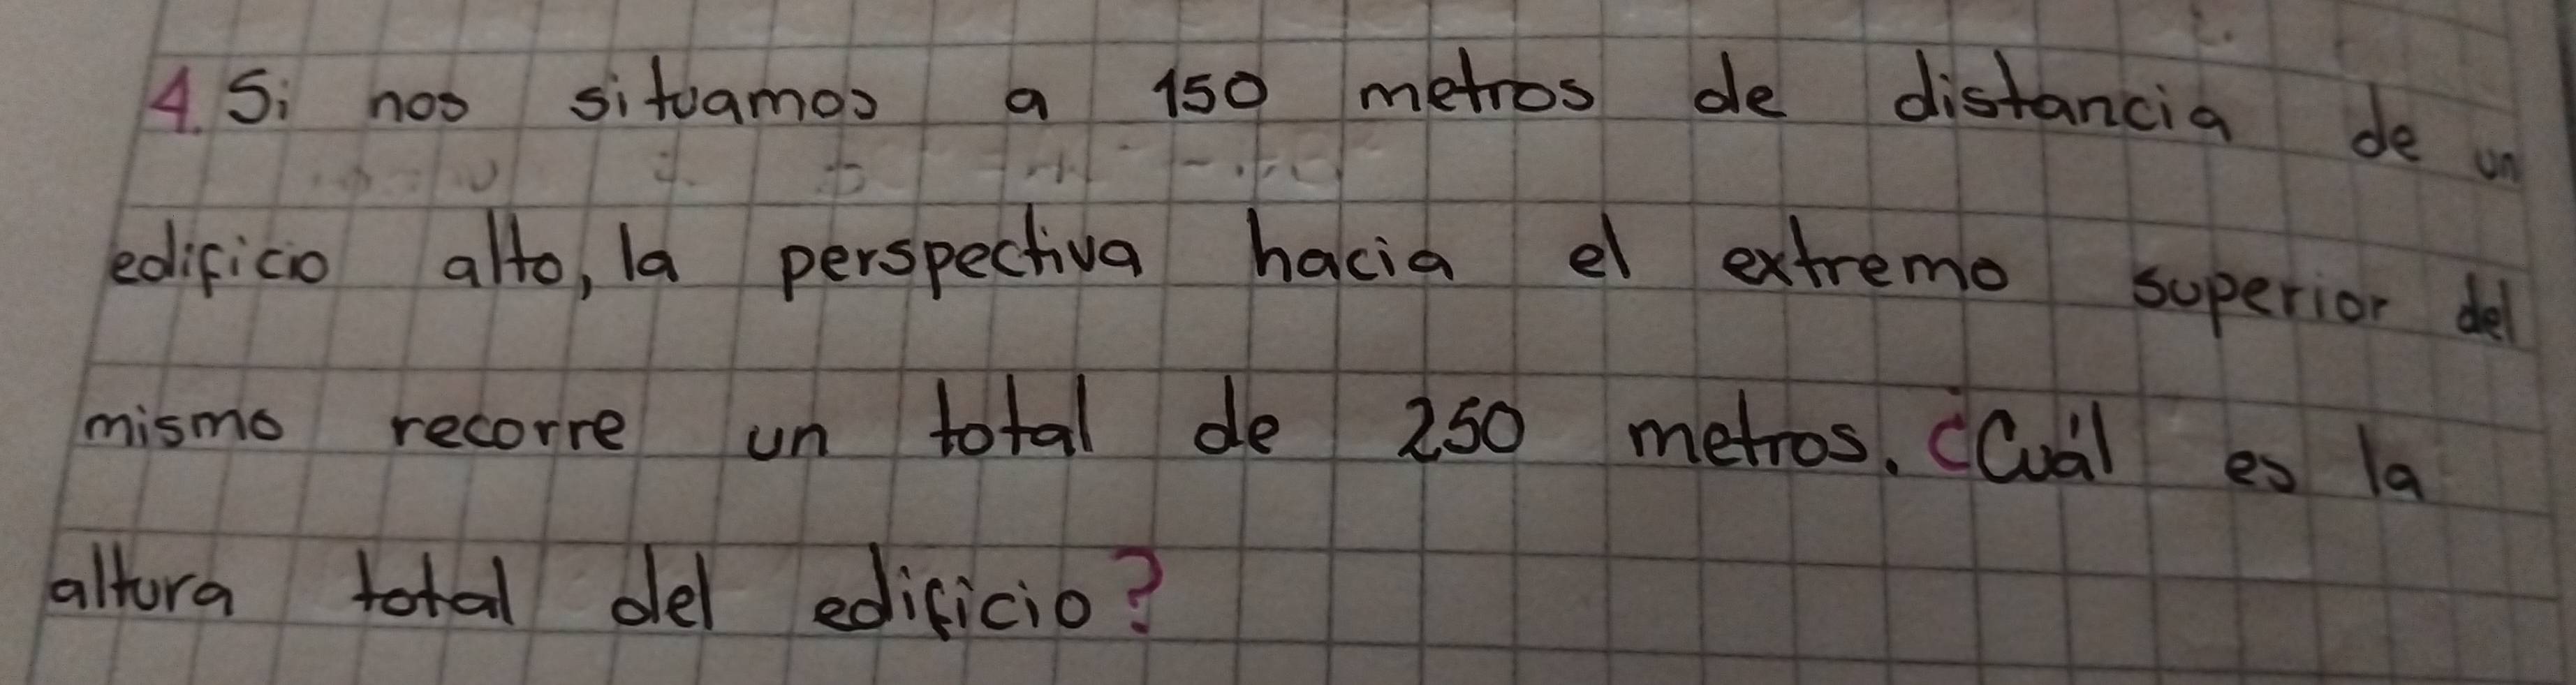 4. Si nos situamos a 150 metros de distancia de un
edificio alto, la perspectiva hacia el extremo superior del
mismo recorre un total de 250 metros. ¿Cuál es la
altura total del edificio?